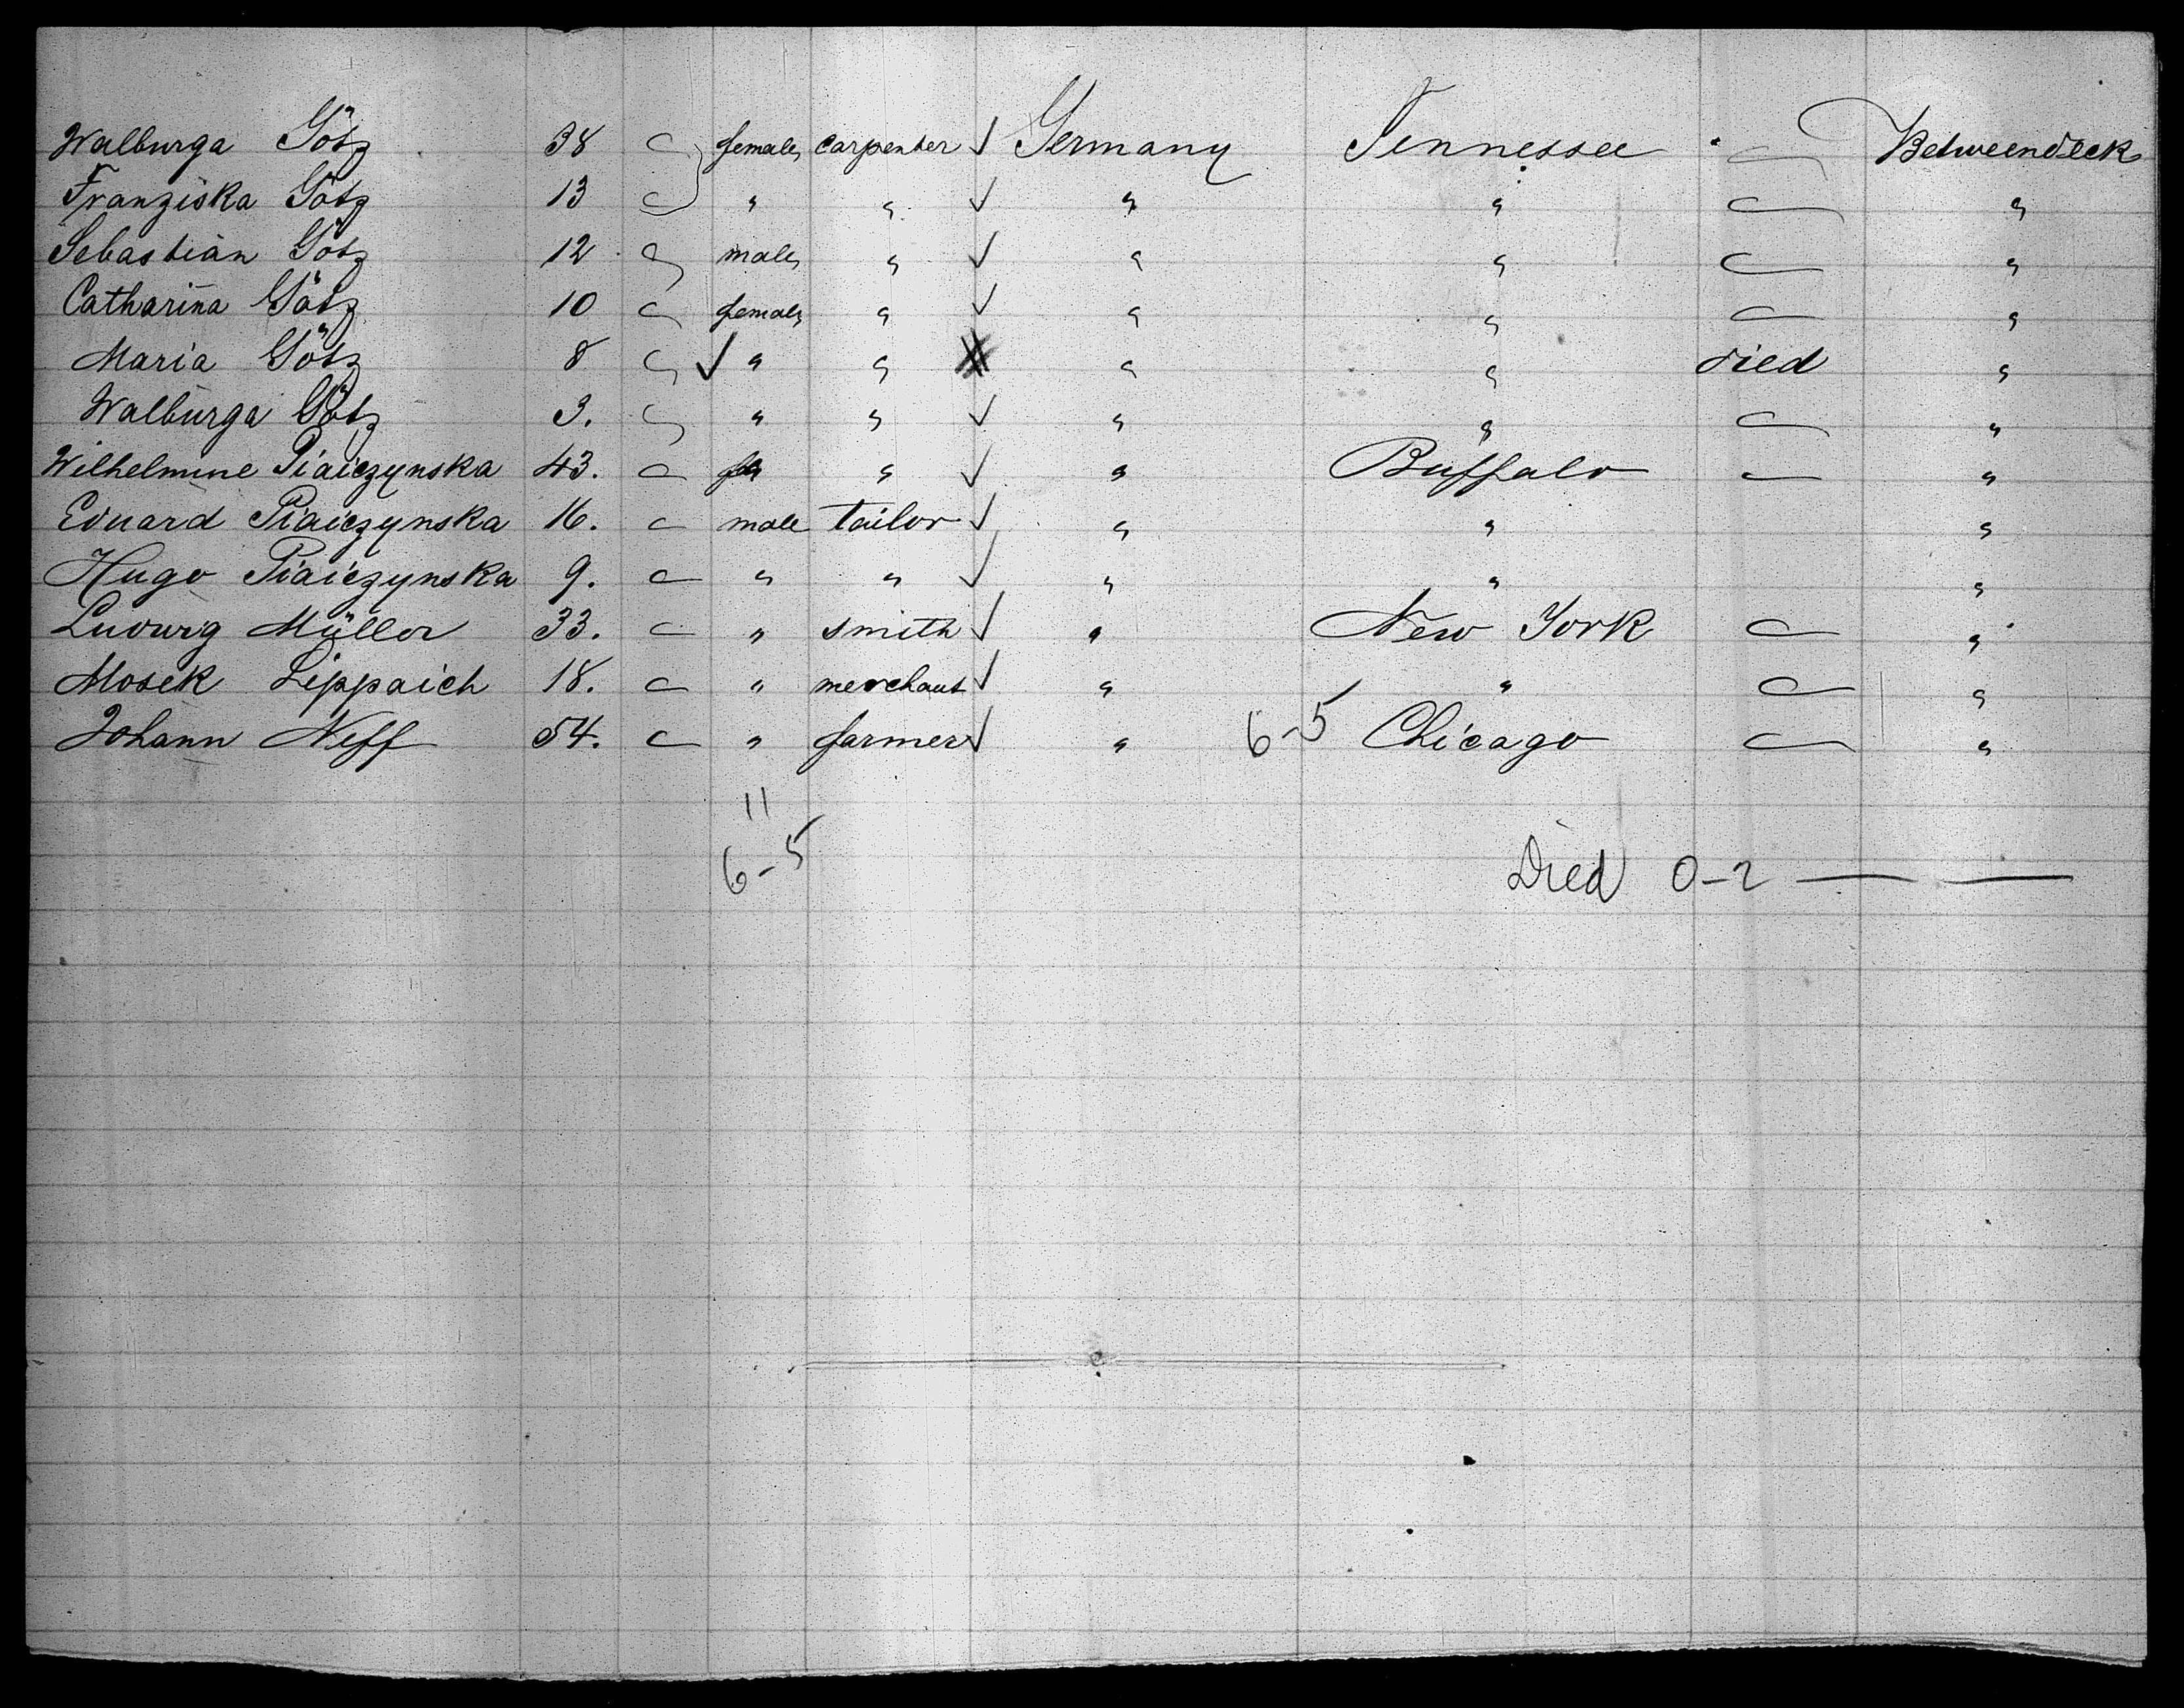 Walburga Götz 38 female carpenter ✓ Germany Tennessee Betweendeck
Franziska Götz 13 " " ✓ " " "
Sebastian Götz 12 male " ✓ " " "
Catharina Götz 10 female " ✓ " " "
Maria Götz 8 ✓ " " " " died "
Walburga Götz 3. " " ✓ " " "
Wilhelmine Piaiczynska 43. " ✓ " Buffalo "
Eduard Piaiczynska 16. male tailor ✓ " " "
Hugo Piaiczynska 9. " " ✓ " " "
Ludwig Müller 33. " smith ✓ " New York "
Mosek Lippaich 18. " merchant ✓ " " "
Johann Neff 54. " farmer ✓ " 6-5 Chicago "
11
6-5
Died 0-2